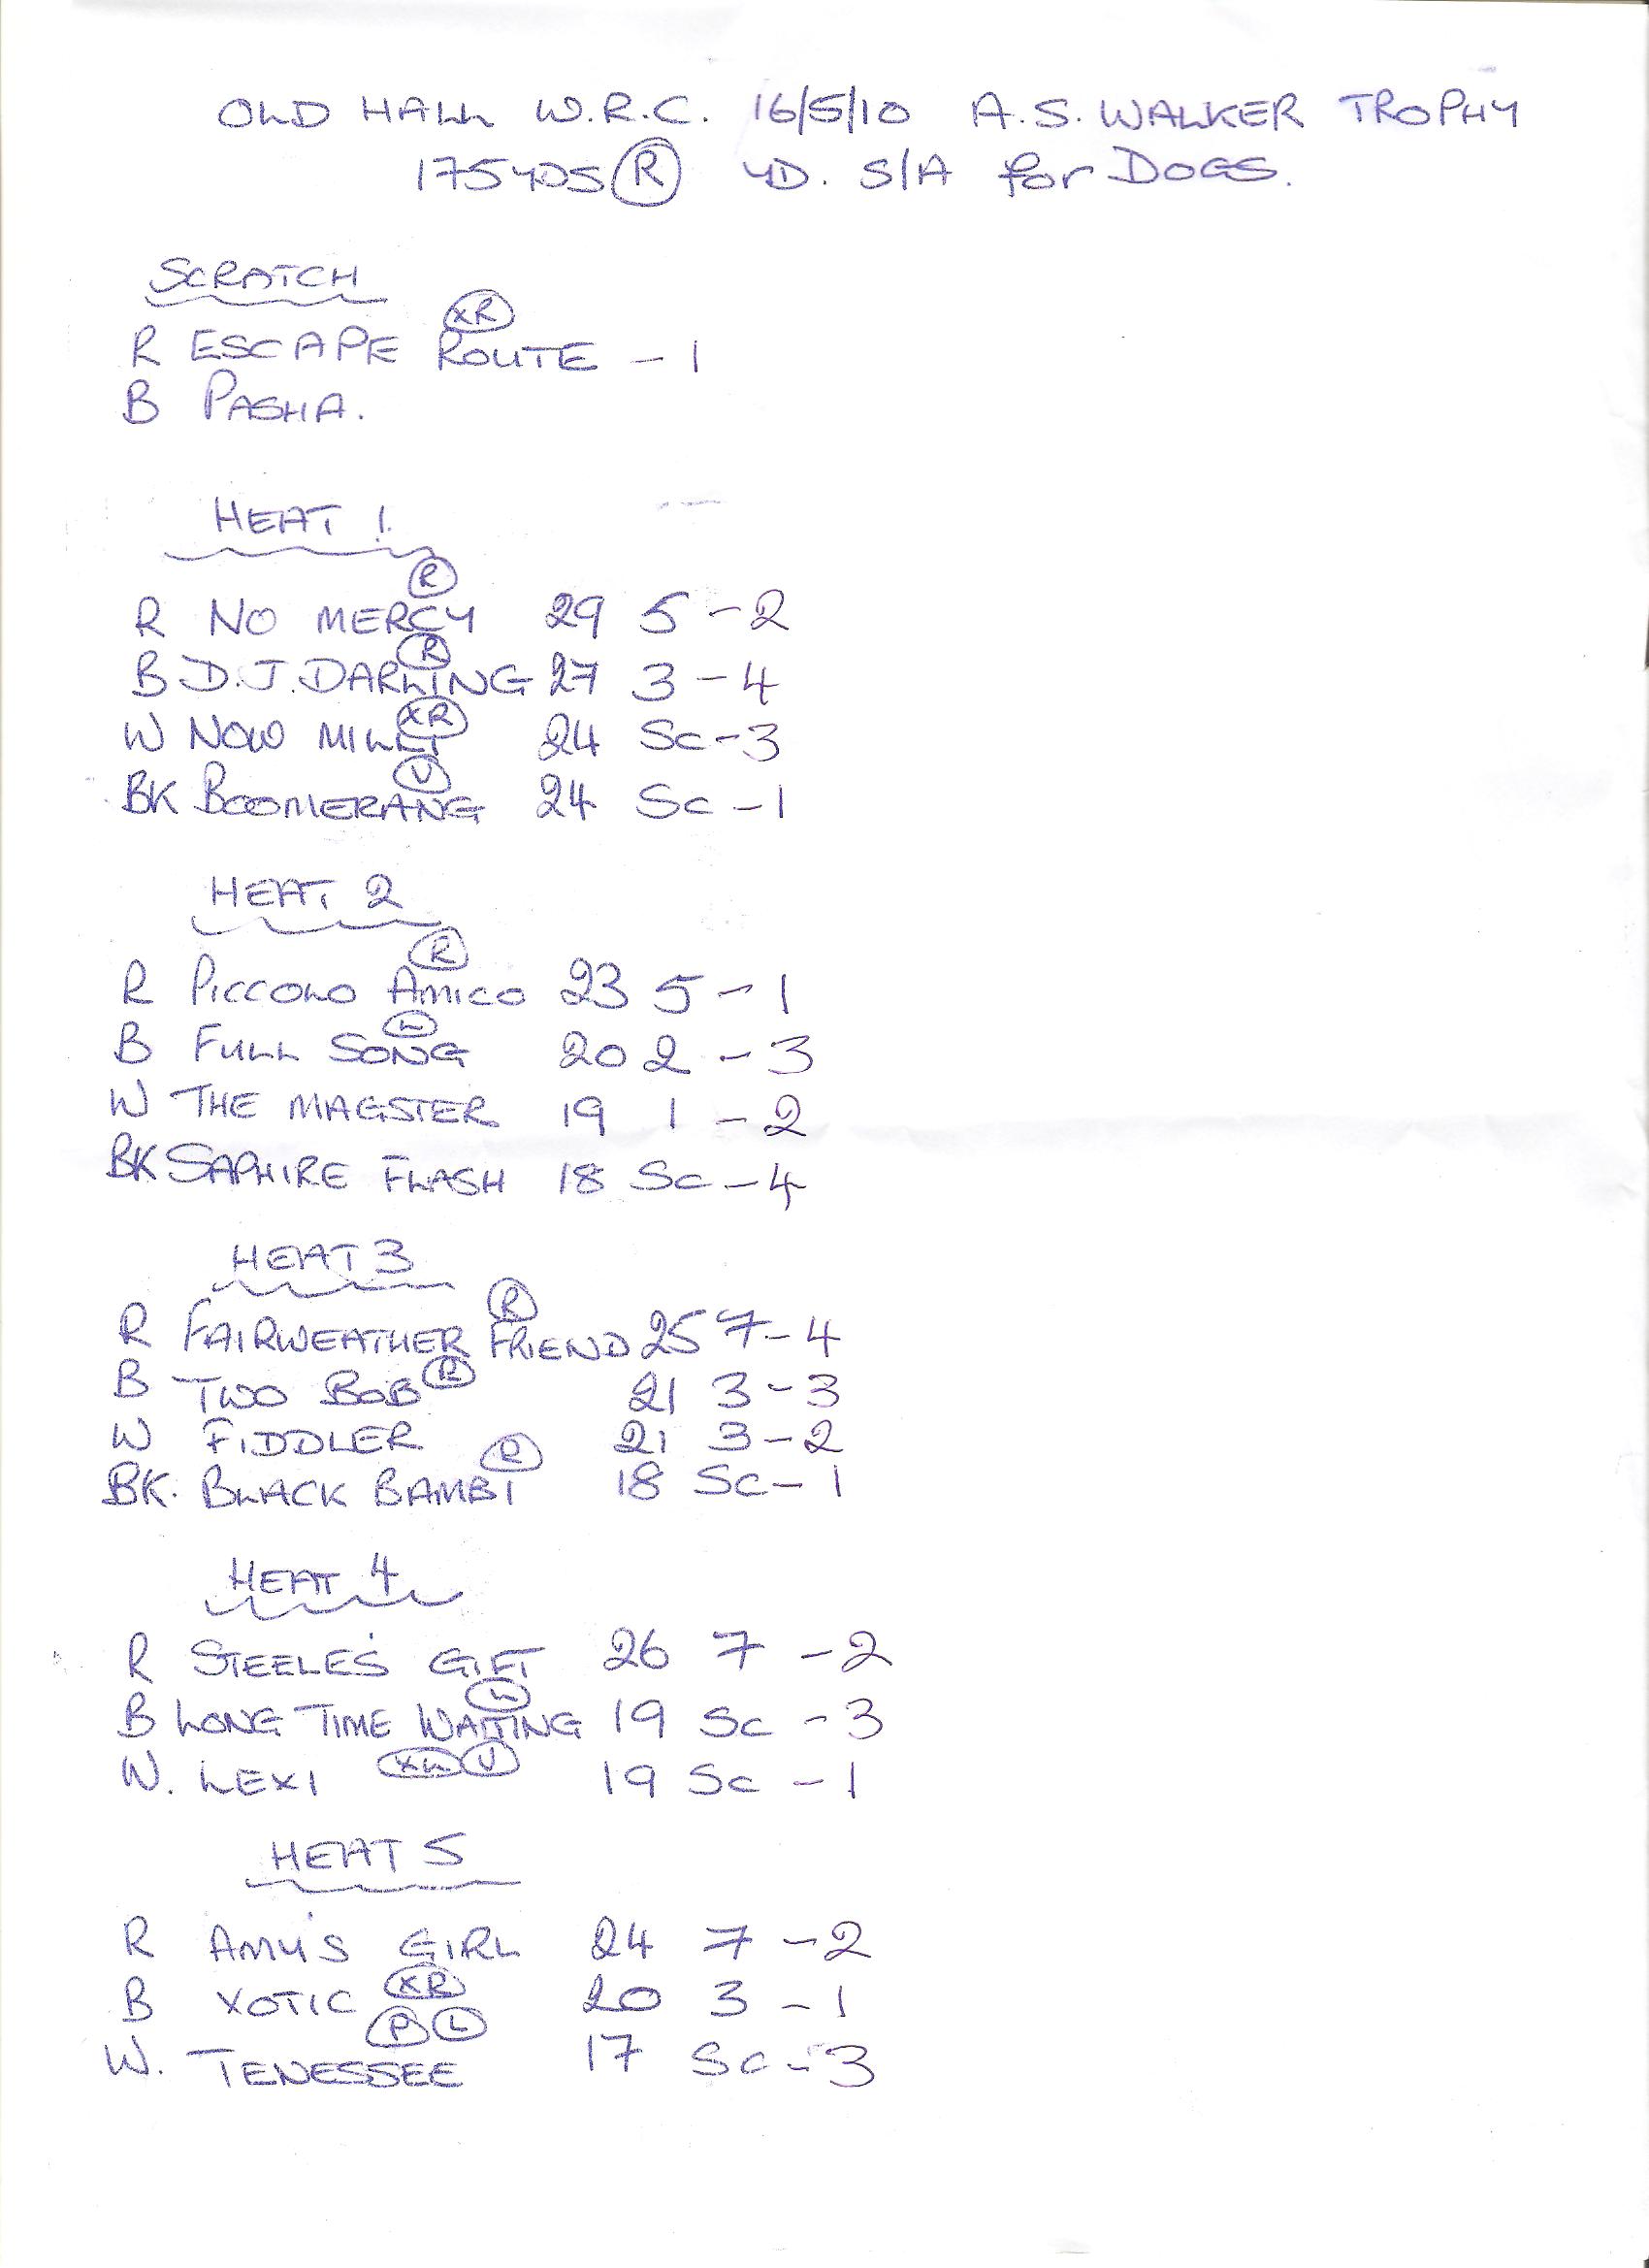 OLD HALL W.R.C. 16/5/10 A.S. WALKER TROPHY
175YDS (R) YD. S/A for DOGS.
SCRATCH
(XR)
R ESCAPE ROUTE - 1
B PASHA.
HEAT 1.
(R)
R NO MERCY 29 5 - 2
(R)
B D.J. DARLING 27 3 - 4
(XR)
W NOW MILLY 24 Sc - 3
(V)
BK BOOMERANG 24 Sc - 1
HEAT 2
(R)
R PICCOLO AMICO 23 5 - 1
(L)
B FULL SONG 20 2 - 3
W THE MAGSTER 19 1 - 2
BK SAPHIRE FLASH 18 Sc - 4
HEAT 3
(R)
R FAIRWEATHER FRIEND 25 7 - 4
B TWO BOB (R) 21 3 - 3
W FIDDLER 21 3 - 2
(R)
BK. BLACK BAMBI 18 Sc - 1
HEAT 4
R STEELE'S GIFT 26 7 - 2
(W)
B LONG TIME WAITING 19 Sc - 3
W. LEXI (XL) (V) 19 Sc - 1
HEAT 5
R AMY'S GIRL 24 7 - 2
B XOTIC (XR) 20 3 - 1
(P) (L)
W. TENESSEE 17 Sc - 3